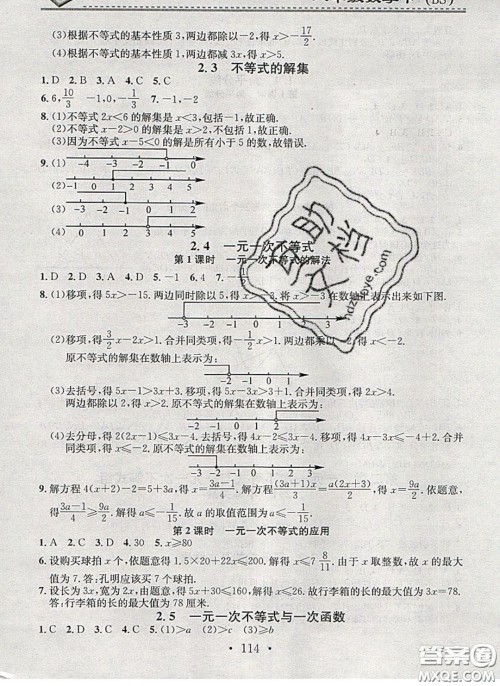 (BS)
(3)根据不等式的基本性质3,两边都除以-2,得x>-17/2.
(4)根据不等式的基本性质1,两边都减3x,得x>5.
2.3 不等式的解集
1.D 2.B 3.A 4.C 5.A
6.6,10/3 -1,0,-1/3 7.-1,-2
8.(1)不等式2x<6的解集是x<3,包括-1,故正确.
(2)不等式x-2>0的解集是x>2,不包括1,故正确.
(3)因为不等式x-5<0的解是所有小于5的数,故错误.
9.(1) -6 -5 -4 -3 -2 -1 0
(2) -1 0 1 2 3 4 5
(3) -4 -3 -2 -1 0 1
(4) -2 -1 0 1 2 3
2.4 一元一次不等式
第1课时 一元一次不等式的解法
1.D 2.D 3.A 4.C 5.-1 6.4 7.-
8.(1)移项,得5x>-15.两边同时除以5,得x>-3.将x>-3在数轴上表示出来如下图.
-3 -2 -1 0 1 2 3
(2)移项,得
合并同类项,得-2x>4.两边都除以-2,得x<-2.
原不等式的解集在数轴上表示为:
-2 -1 0 1
(3)去括号,得5x-1>3x+3.移项,得5x-3x>3+1.合并同类项,得2x>4.
两边都除以2,得x>2.原不等式的解集在数轴上表示为:
-1 0 1 2
(4)去分母,得2(2x-1)≤3x-4.去括号,得4x-2≤3x-4.移项,得4x-3x≤-4+2.
合并同类项,得x≤-2.原不等式的解集在数轴上表示为:
-2 -1 0 1
9.解方程4(a+2)-2=5+3a,得
依题意,
得(3a-1)/4≥9a/2.解得a≤-1/15.故a的取值范围为a≤-1/15.
第2课时 一元一次不等式的应用
1.C 2.A 3.C 4.15 5.x≥80
6.设购买球拍x个,依题意得1.5×20+22x≤200.解得x≤7 8/11.由于x取整数,故x的最大值为7.答:孔明应该买7个球拍.
7.设长为3x,宽为2x,由题意,得5x+30≤160,解得x≤26.故行李箱的长的最大值为3x=78.
答:行李箱的长的最大值为78厘米.
2.5 一元一次不等式与一次函数
1.C 2.D 3.C 4.A 5.(1)>a (2)>c (3)≥b
· 114 ·
互助文档
hdzuoye.com
答案圈
MXQE.COM